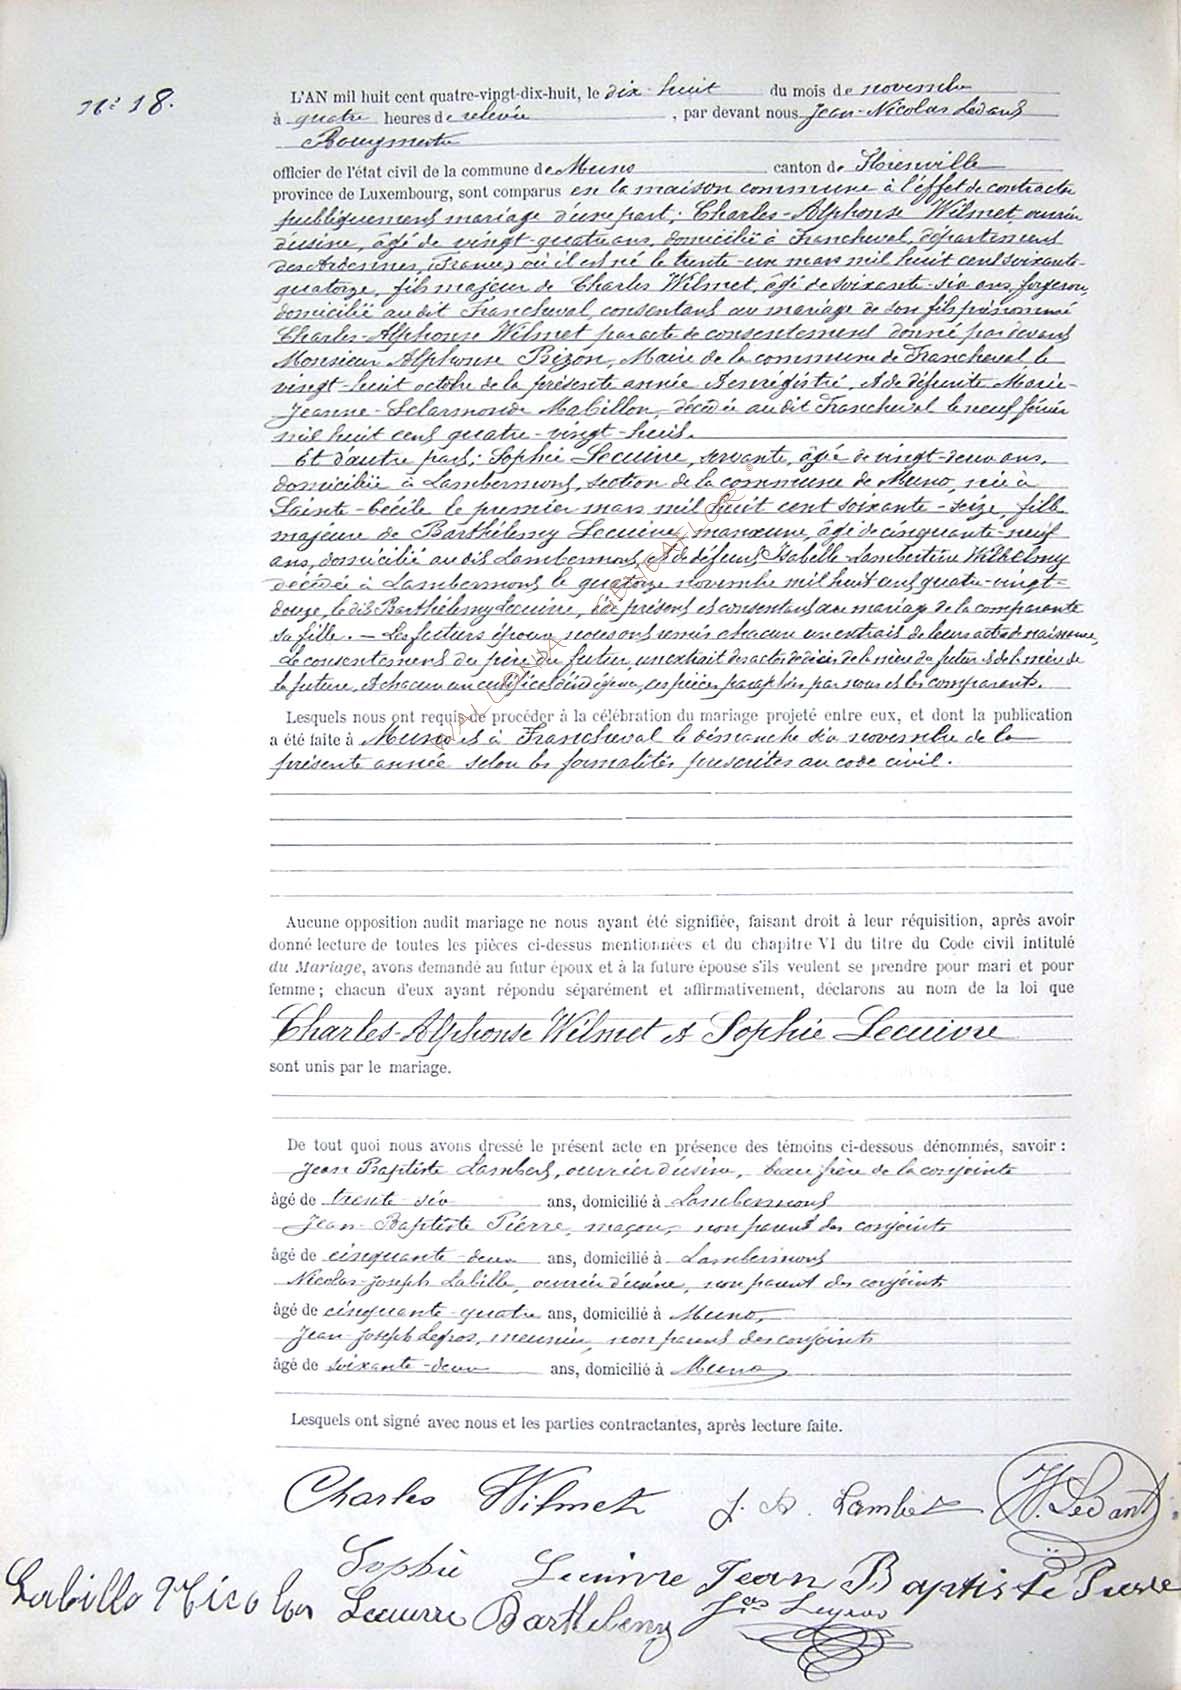 N° 18.
L'AN mil huit cent quatre-vingt-dix-huit, le dix-huit du mois de novembre
à quatre heures de relevée, par devant nous Jean-Nicolas Ledant
Bourgmestre
officier de l'état civil de la commune de Muno canton de Florenville
province de Luxembourg, sont comparus en la maison commune à l'effet de contracter
publiquement mariage d'une part; Charles-Alphonse Wilmet ouvrier
d'usine, âgé de vingt-quatre ans, domicilié à Francheval, département
des Ardennes, (France) où il est né le trente-un mars mil huit cent soixante-
quatorze, fils majeur de Charles Wilmet, âgé de soixante-six ans, forgeron,
domicilié au dit Francheval, consentant au mariage de son fils prénommé
Charles-Alphonse Wilmet par acte de consentement donné par devant
Monsieur Alphonse Bizon, Maire de la commune de Francheval le
vingt-huit octobre de la présente année enrégistré, et de défunte Marie-
Jeanne-Sclarmonde Mabillon, décédée au dit Francheval le neuf février
mil huit cent quatre-vingt-huit.
Et d'autre part; Sophie Lecuivre, servante, âgée de vingt-deux ans,
domiciliée à Lambermont, section de la commune de Muno, née à
Sainte-Cécile le premier mars mil huit cent soixante-seize, fille
majeure de Barthélemy Lecuivre, manœuvre, âgé de cinquante-neuf
ans, domicilié au dit Lambermont, et de défunte Isabelle-Lambertine Wilhelmy
décédée à Lambermont le quatorze novembre mil huit cent quatre-vingt-
douze, le dit Barthélemy Lecuivre, ici présent et consentant au mariage de la comparante
sa fille. — Les futurs époux nous ont remis chacun un extrait de leurs actes de naissance,
le consentement du père du futur, un extrait des actes de décès de la mère du futur et de la mère de
la future, et chacun un certificat d'indigence, ces pièces paraphées par nous et les comparants.
Lesquels nous ont requis de procéder à la célébration du mariage projeté entre eux, et dont la publication
a été faite à Muno et à Francheval le dimanche six novembre de la
présente année selon les formalités prescrites au code civil.
WALLONIA GENICAFLOR ©
Aucune opposition audit mariage ne nous ayant été signifiée, faisant droit à leur réquisition, après avoir
donné lecture de toutes les pièces ci-dessus mentionnées et du chapitre VI du titre du Code civil intitulé
du Mariage, avons demandé au futur époux et à la future épouse s'ils veulent se prendre pour mari et pour
femme; chacun d'eux ayant répondu séparément et affirmativement, déclarons au nom de la loi que
Charles-Alphonse Wilmet et Sophie Lecuivre
sont unis par le mariage.
De tout quoi nous avons dressé le présent acte en présence des témoins ci-dessous dénommés, savoir :
Jean Baptiste Lambert, ouvrier d'usine, beau frère de la conjointe
âgé de trente-six ans, domicilié à Lambermont
Jean-Baptiste Pierre, maçon, non parent des conjoints
âgé de cinquante-deux ans, domicilié à Lambermont
Nicolas-Joseph Labille, ouvrier d'usine, non parent des conjoints
âgé de cinquante-quatre ans, domicilié à Muno,
Jean-Joseph Legros, meunier, non parent des conjoints
âgé de soixante-deux ans, domicilié à Muno
Lesquels ont signé avec nous et les parties contractantes, après lecture faite.
Charles Wilmet J. B. Lambert N. Ledant
Sophie Lecuivre Jean Baptiste Pierre
Labille Nicolas Lecuivre Barthelemy Jos Legros